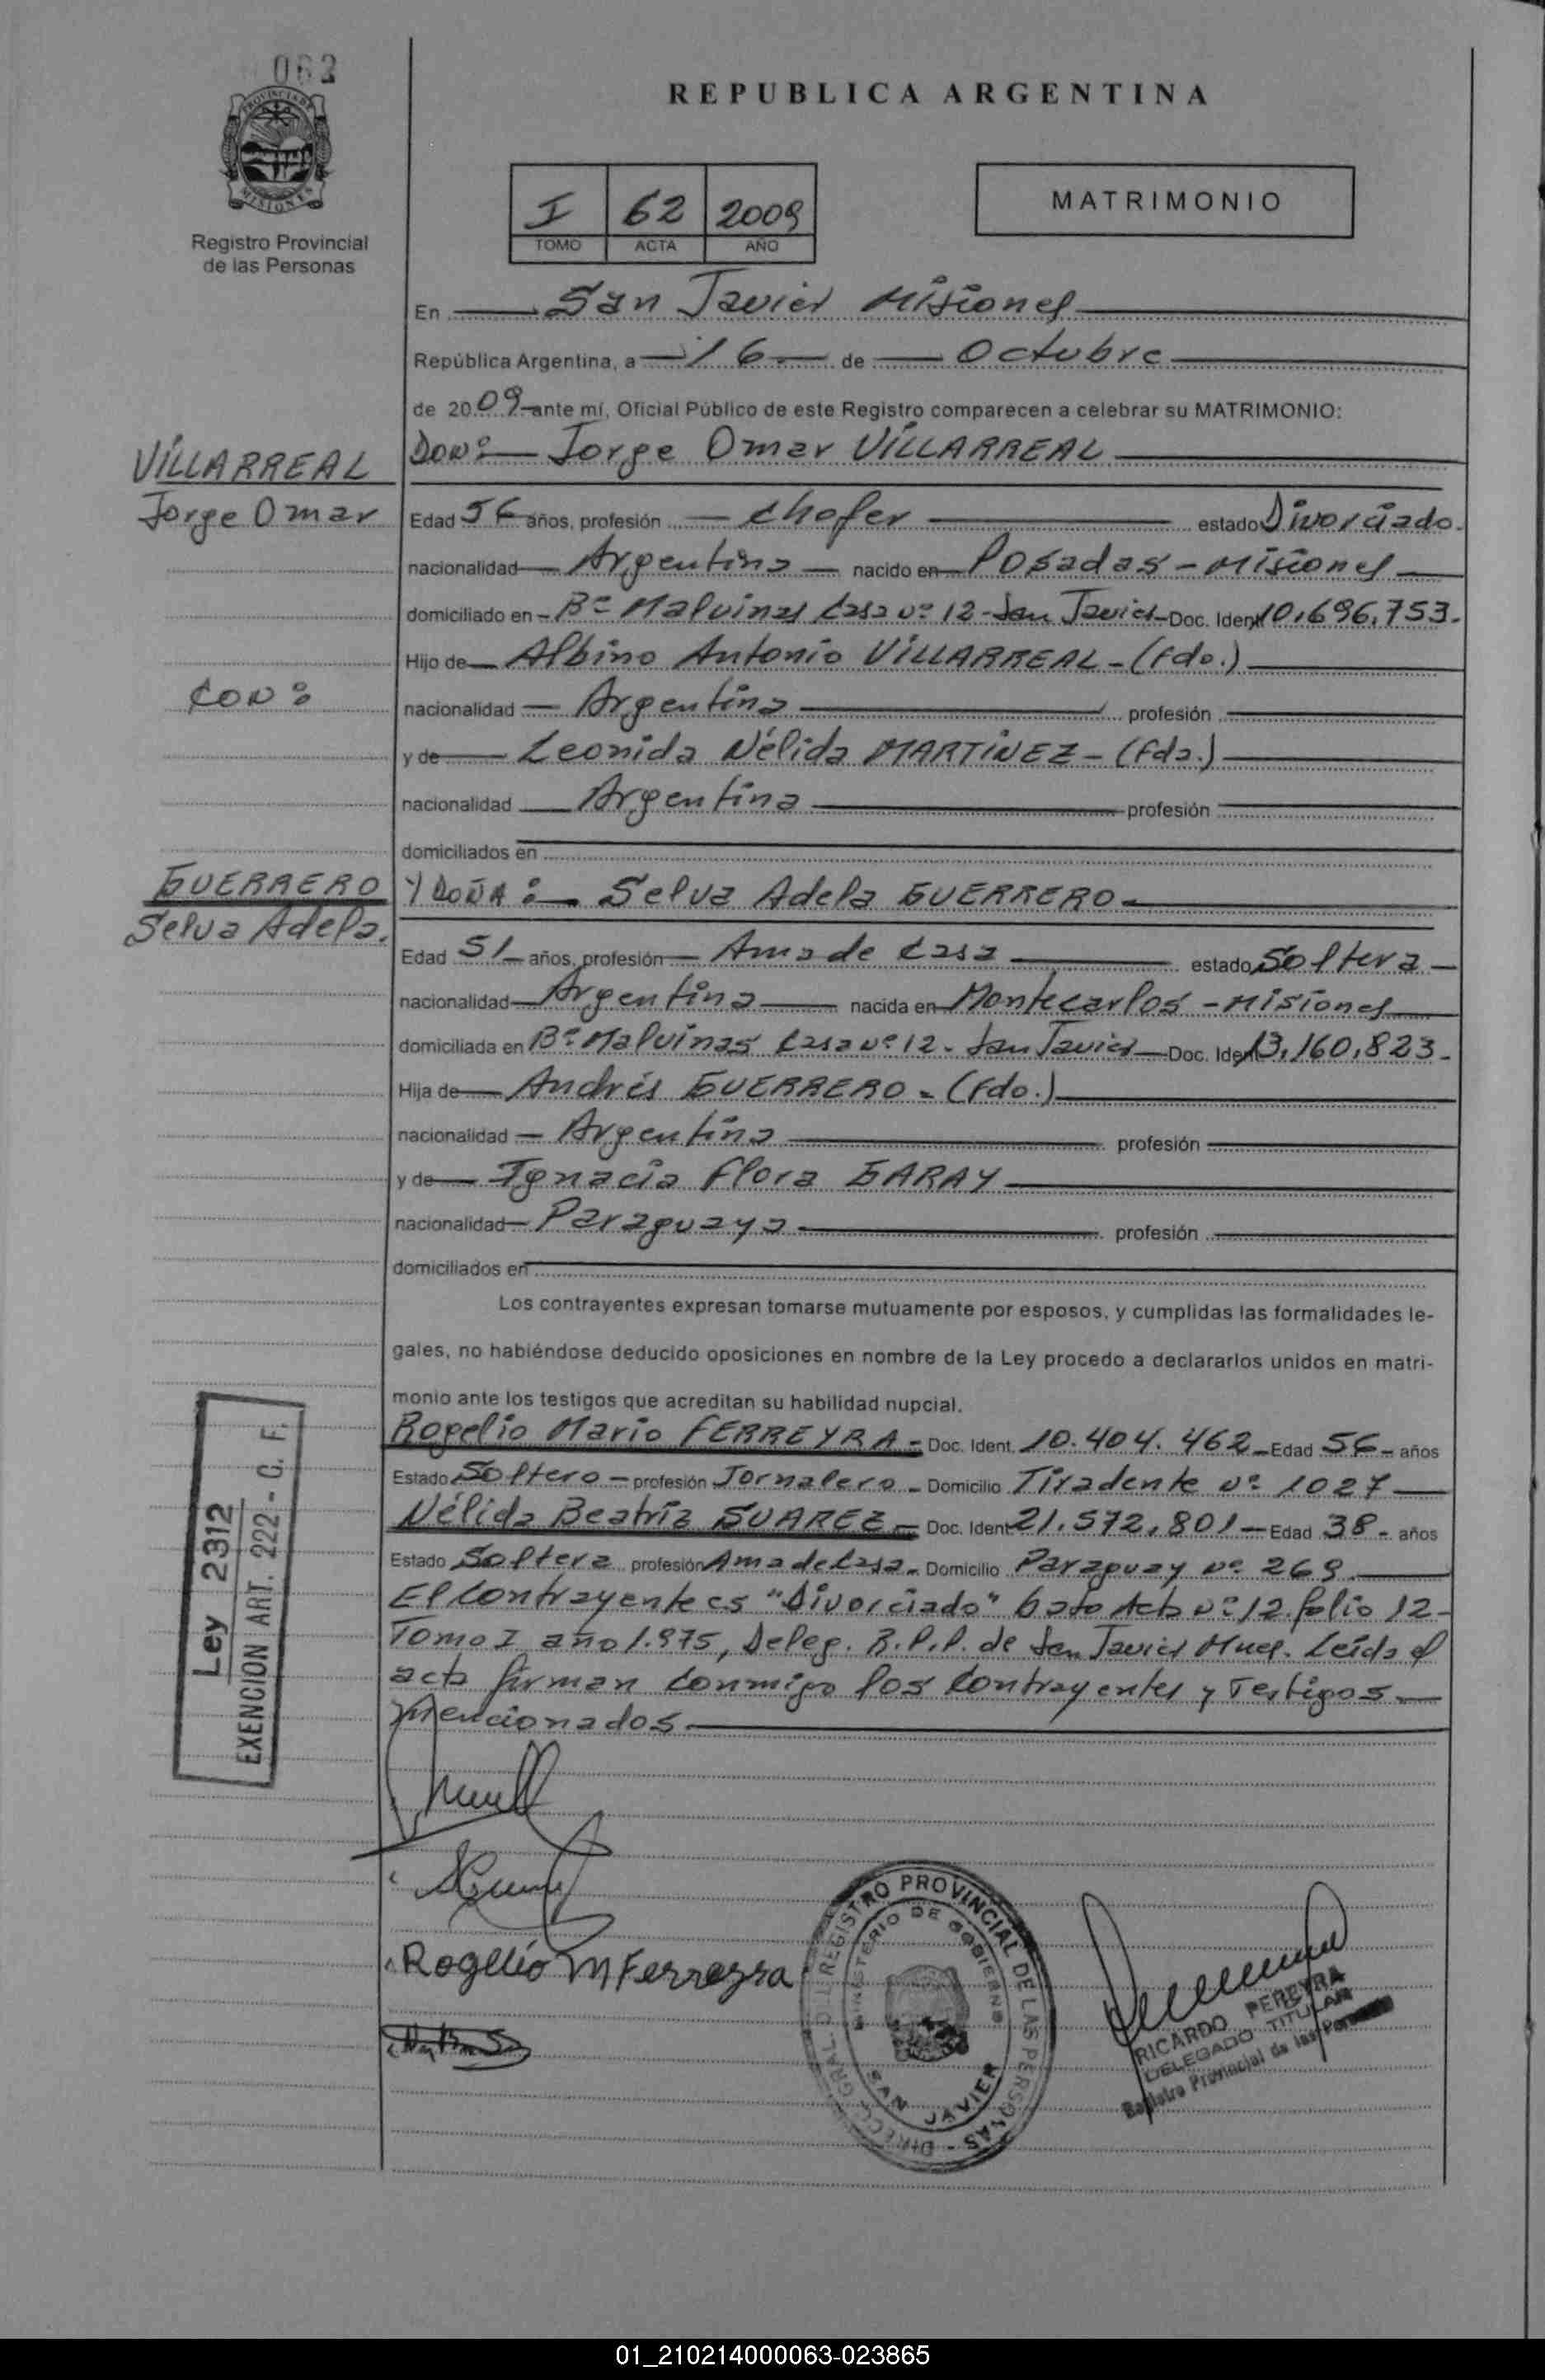 062
PROVINCIA DE
MISIONES
Registro Provincial
de las Personas
REPUBLICA ARGENTINA
I 62 2009
TOMO ACTA AÑO
MATRIMONIO
En San Javier Misiones
República Argentina, a 16 de Octubre
de 2009 ante mí, Oficial Público de este Registro comparecen a celebrar su MATRIMONIO:
VILLARREAL
Jorge Omar
DON: Jorge Omar VILLARREAL
Edad 56 años, profesión chofer estado Divorciado.
nacionalidad Argentina nacido en Posadas - Misiones
domiciliado en Bº Malvinas Casa nº 12 - San Javier Doc. Ident 10.696.753.
Hijo de Albino Antonio VILLARREAL - (fdo.)
CON:
nacionalidad Argentina profesión
y de Leonida Nélida MARTINEZ - (fda.)
nacionalidad Argentina profesión
domiciliados en
GUERRERO
Selva Adela.
Y DOÑA: Selva Adela GUERRERO
Edad 51 años, profesión Ama de Casa estado Soltera
nacionalidad Argentina nacida en Montecarlos - Misiones
domiciliada en Bº Malvinas Casa nº 12 - San Javier Doc. Ident 13.160.823.
Hija de Andrés GUERRERO - (fdo.)
nacionalidad Argentina profesión
y de Ignacia Flora GARAY
nacionalidad Paraguaya profesión
domiciliados en
Los contrayentes expresan tomarse mutuamente por esposos, y cumplidas las formalidades le-
gales, no habiéndose deducido oposiciones en nombre de la Ley procedo a declararlos unidos en matri-
monio ante los testigos que acreditan su habilidad nupcial.
Rogelio Mario FERREYRA - Doc. Ident. 10.404.462 Edad 56 años
Estado Soltero profesión Jornalero - Domicilio Tiradente nº 1027
Nélida Beatríz SUAREZ - Doc. Ident 21.572.801 Edad 38 años
Estado Soltera profesión Ama de Casa - Domicilio Paraguay nº 269
El contrayente es "Divorciado" bajo Acta nº 12 folio 12 -
Tomo I año 1.975, Deleg. R.P.P. de San Javier Mnes. Leída el
acta firman conmigo los Contrayentes y Testigos
mencionados.
Ley 2312
EXENCION ART. 222 - C. F.
Rogelio M Ferreyra
DIRECC. GRAL. DEL REGISTRO PROVINCIAL DE LAS PERSONAS
MINISTERIO DE GOBIERNO
SAN JAVIER
RICARDO PEREYRA
DELEGADO TITULAR
Registro Provincial de las Personas
01_210214000063-023865